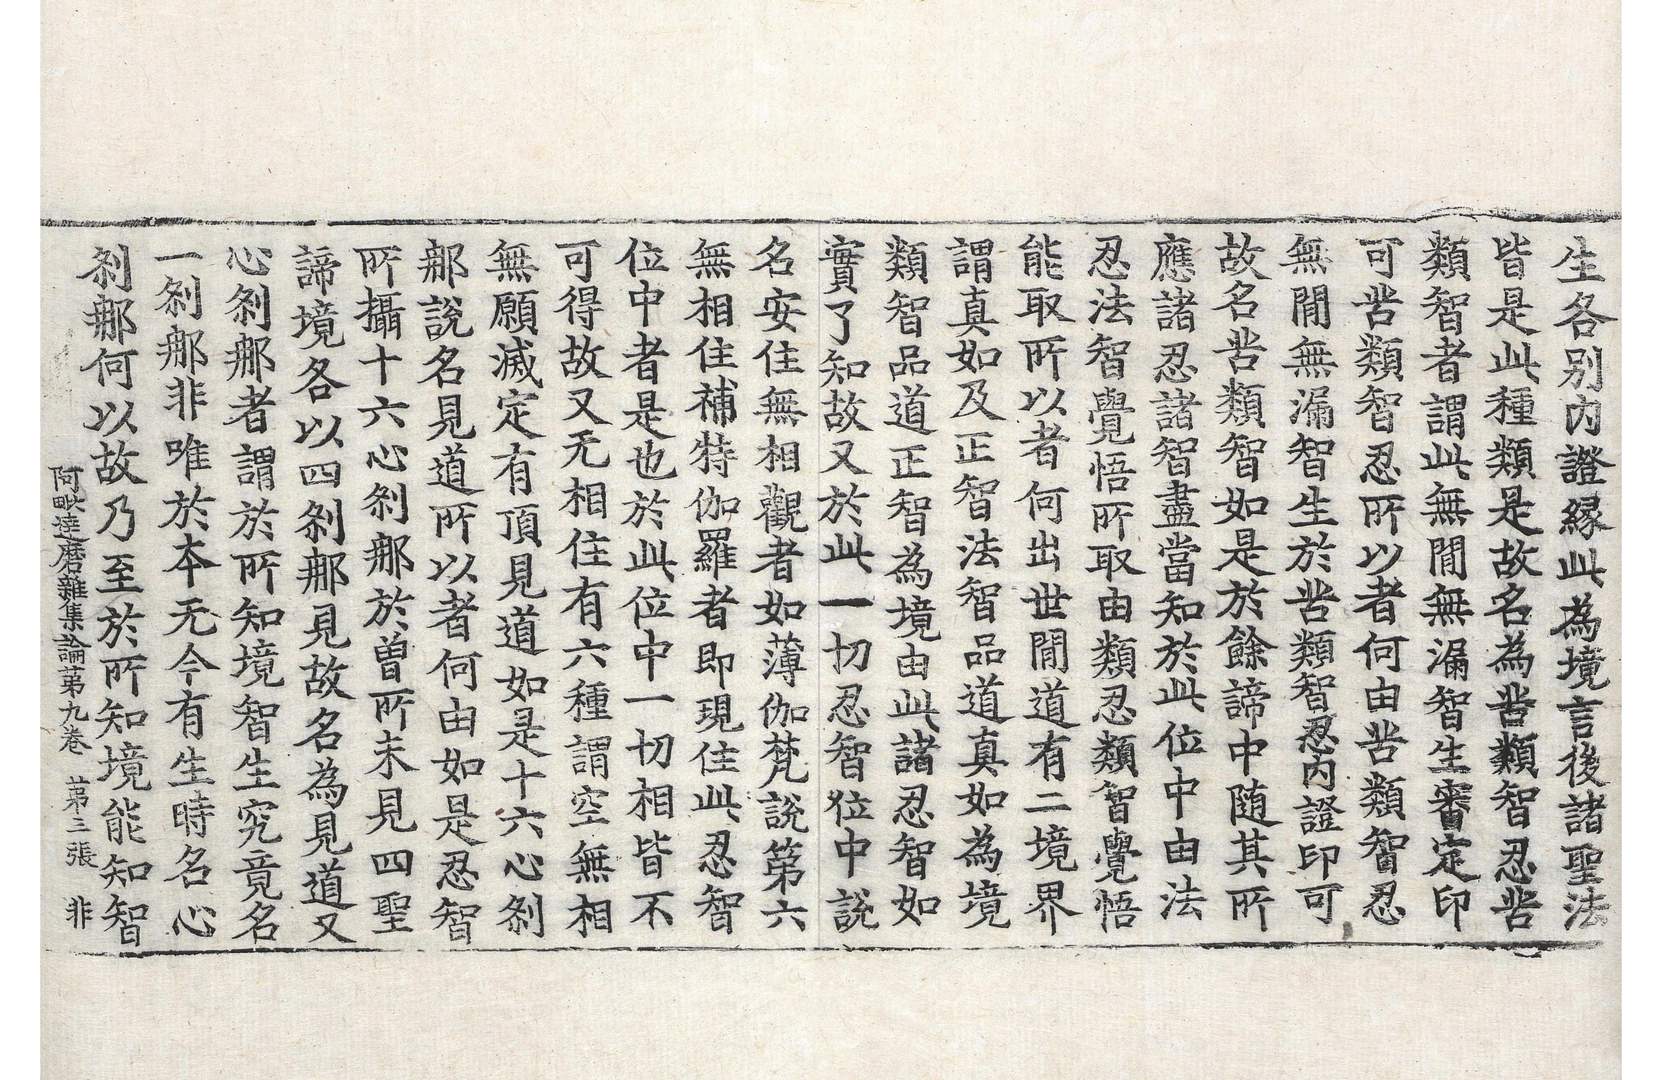 生各別内證緣此為境言後諸聖法
皆是此種類是故名為苦類智忍苦
類智者謂此無間無漏智生審定印
可苦類智忍所以者何由苦類智忍
無間無漏智生於苦類智忍内證印可
故名苦類智如是於餘諦中随其所
應諸忍諸智盡當知於此位中由法
忍法智覺悟所取由類忍類智覺悟
能取所以者何出世間道有二境界
謂真如及正智法智品道真如為境
類智品道正智為境由此諸忍智如
實了知故又於此一切忍智位中説
名安住無相觀者如薄伽梵説第六
無相住補特伽羅者即現住此忍智
位中者是也於此位中一切相皆不
可得故又无相住有六種謂空無相
無願滅定有頂見道如是十六心剎
那説名見道所以者何由如是忍智
所攝十六心剎那於曽所未見四聖
諦境各以四剎那見故名為見道又
心剎那者謂於所知境智生究竟名
一剎那非唯於本无今有生時名心
剎那何以故乃至於所知境能知智
阿毗達磨雜集論苐九卷　苐三張　非